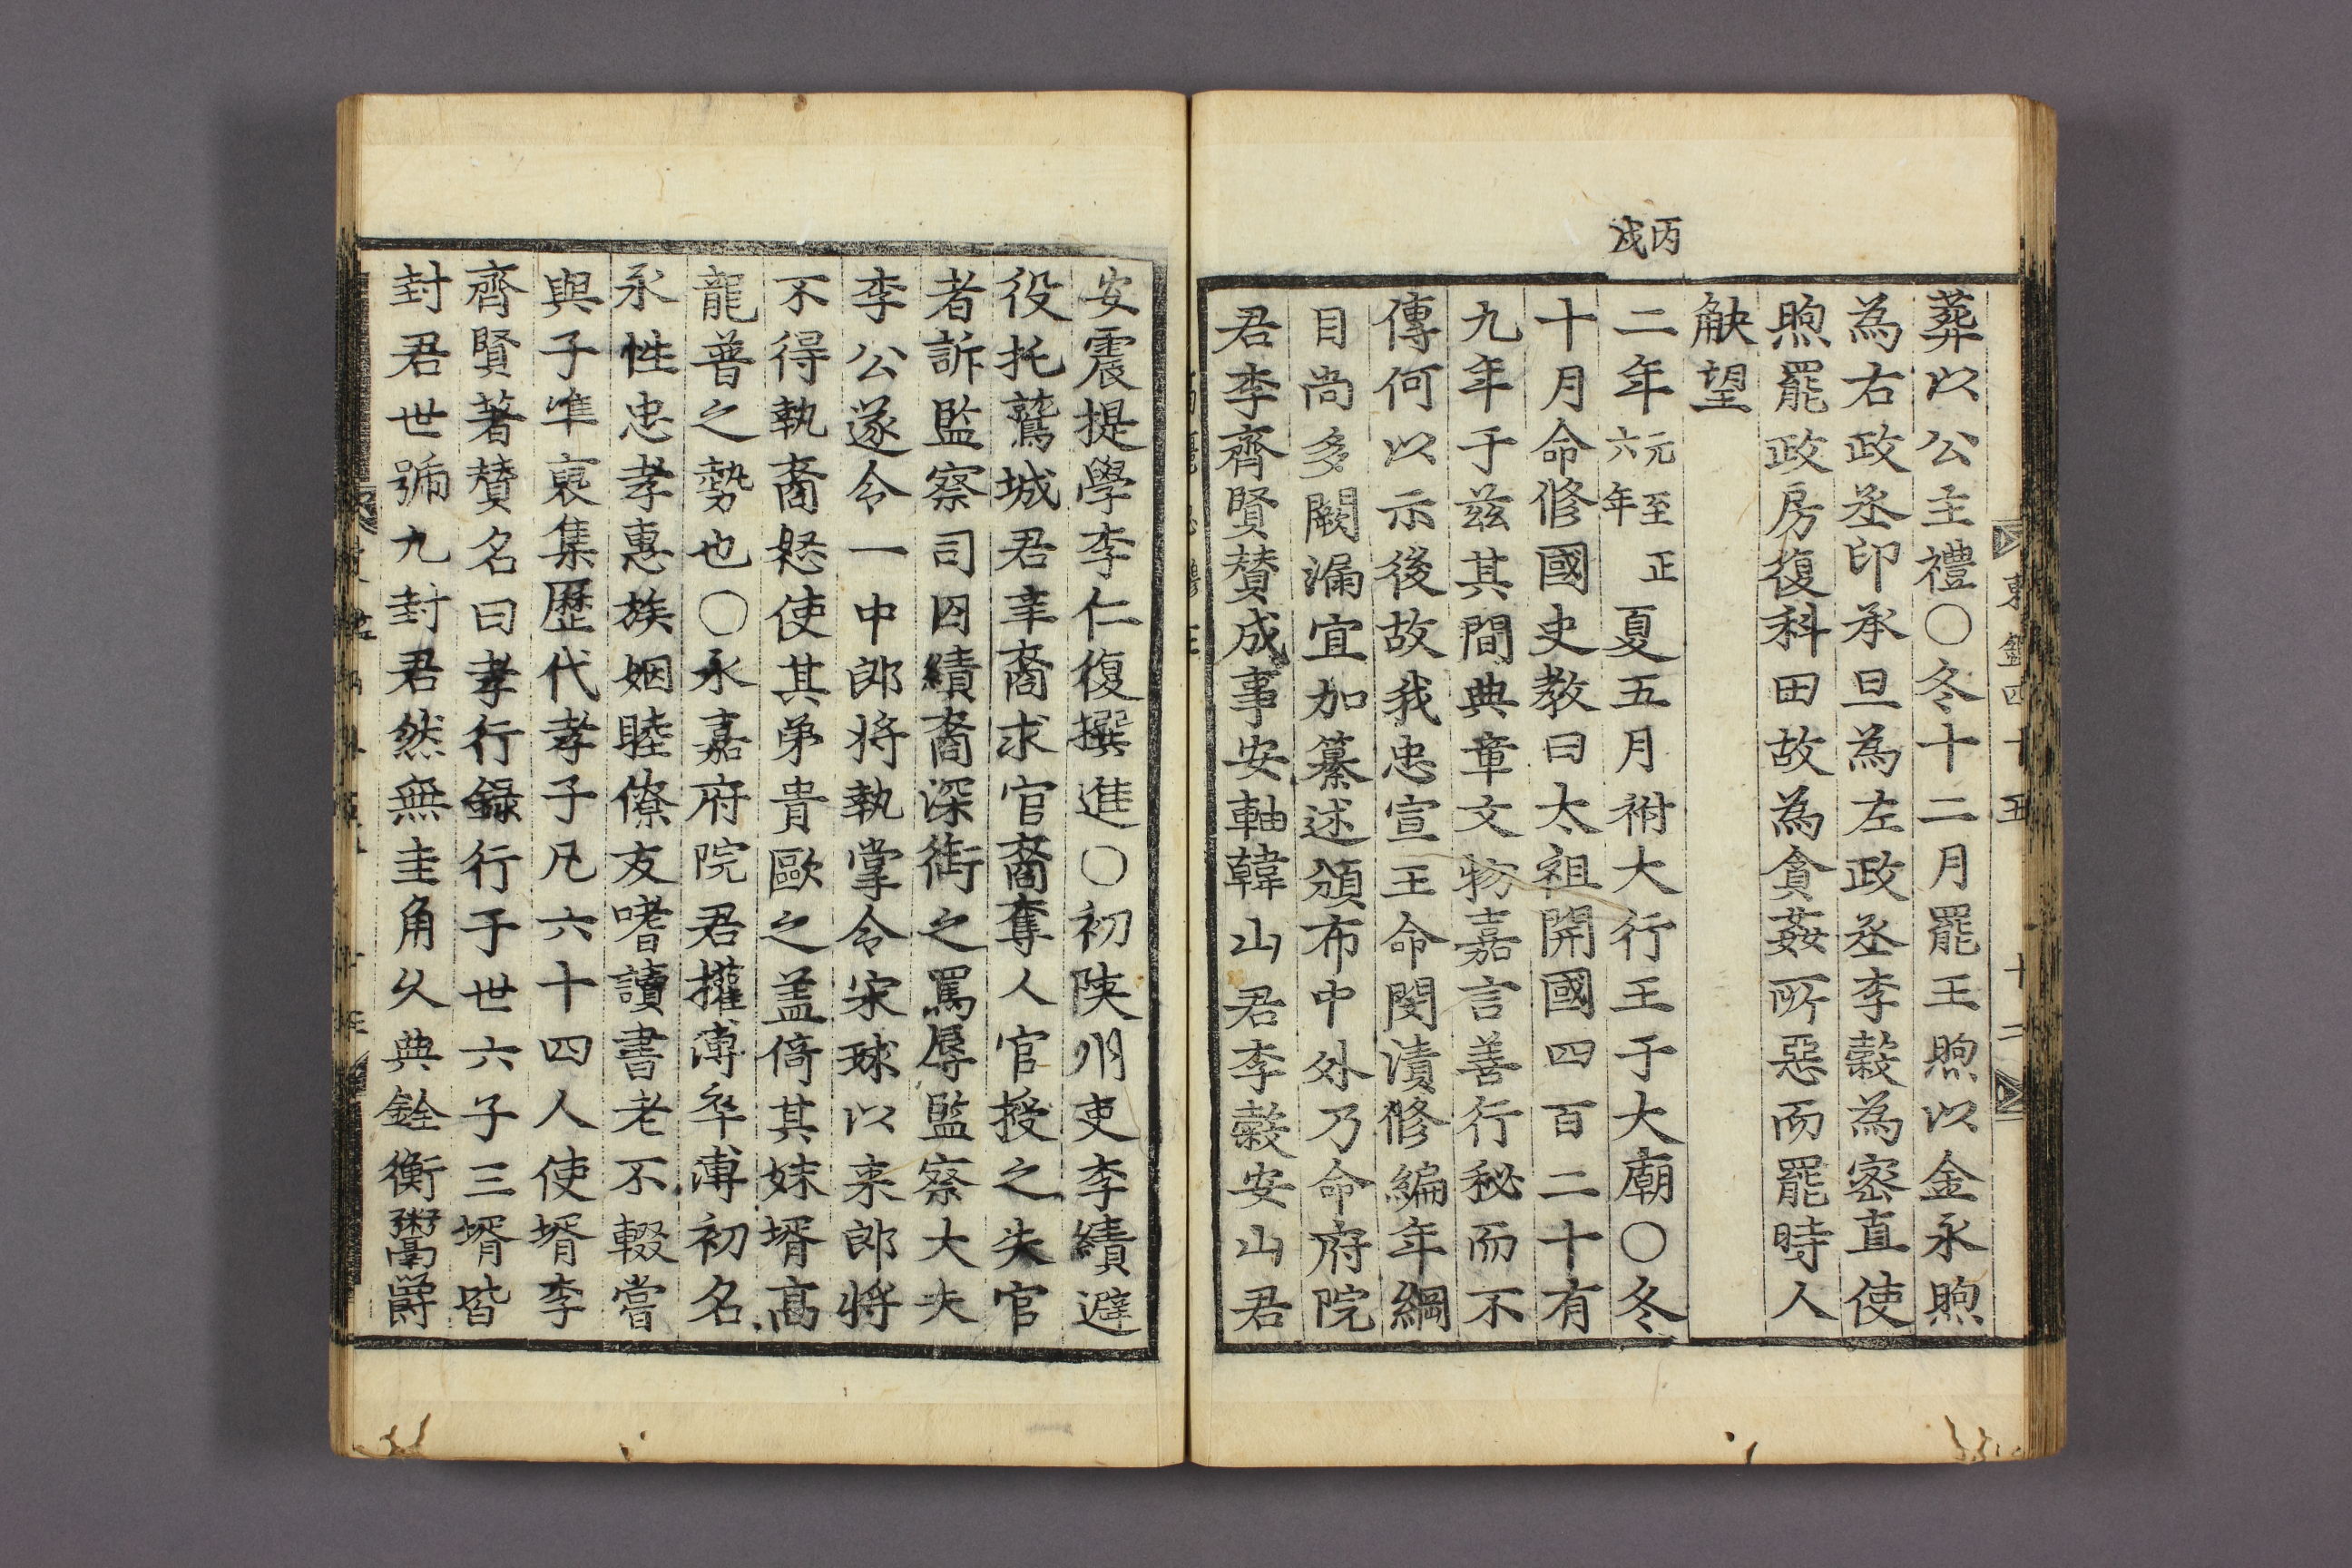 東鑑四十五 十二
葬以公主禮○冬十二月罷王煦以金永煦
為右政丞印承旦為左政丞李穀為密直使
煦罷政房復科田故為貪姦所惡而罷時人
觖望
丙戌
二年元至正六年夏五月祔大行王于大廟○冬
十月命修國史教曰太祖開國四百二十有
九年于茲其間典章文物嘉言善行秘而不
傳何以示後故我忠宣王命閔漬修編年綱
目尚多闕漏宜加纂述頒布中外乃命府院
君李齊賢賛成事安軸韓山君李穀安山君
安震提學李仁復撰進○初陜州吏李績避
役托鷲城君辛裔求官裔奪人官授之失官
者訴監察司囚績裔深銜之罵辱監察大夫
李公遂令一中郎将執掌令宋球以来郎將
不得執裔怒使其弟貴歐之盖倚其妹壻高
龍普之勢也○永嘉府院君權溥卒溥初名
永性忠孝惠族姻睦僚友嗜讀書老不輟嘗
與子準裒集歷代孝子凡六十四人使壻李
齊賢著賛名曰孝行録行于世六子三壻皆
封君世號九封君然無圭角久典銓衡鬻爵